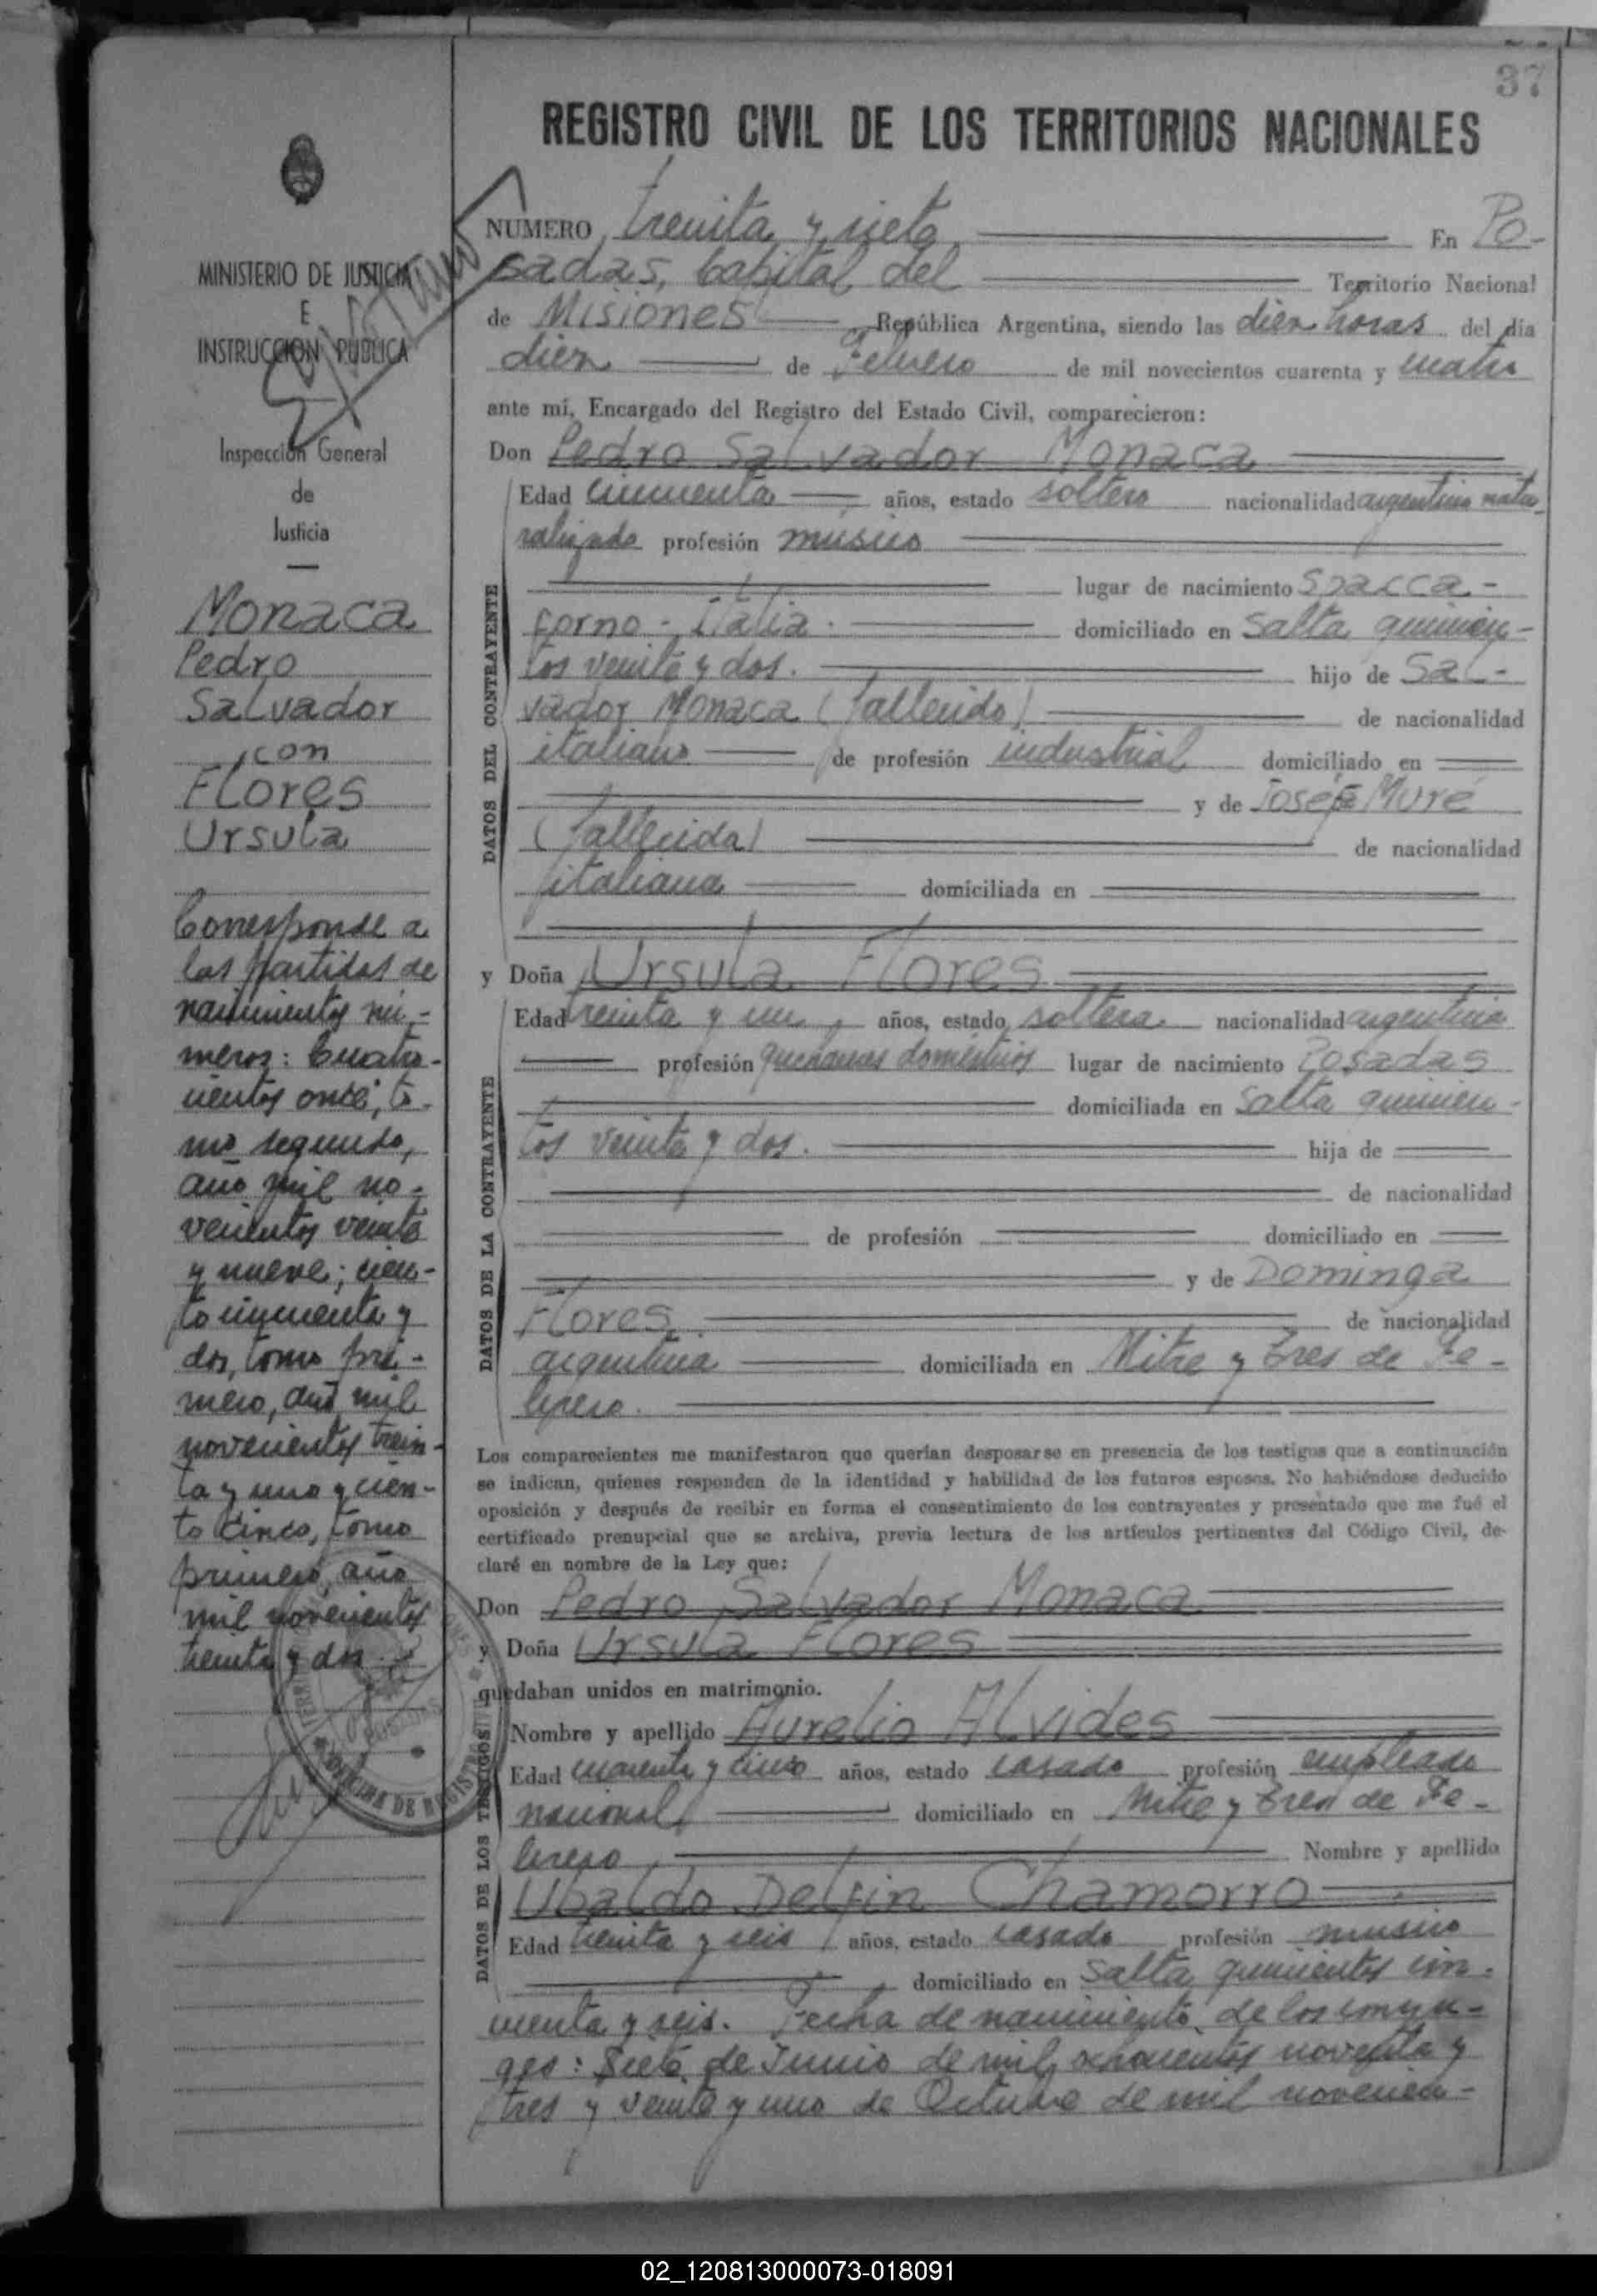 37
REGISTRO CIVIL DE LOS TERRITORIOS NACIONALES
MINISTERIO DE JUSTICIA
E
INSTRUCCION PUBLICA
Inspección General
de
Justicia
Monaca
Pedro
Salvador
con
Flores
Ursula
Corresponde a
las partidas de
nacimientos nú-
meros: Cuatro-
cientos once, to-
mo segundo,
año mil no-
vecientos veinte
y nueve; cien-
to cincuenta y
dos, tomo pri-
mero, año mil
novecientos trein-
ta y uno y cien-
to cinco, tomo
primero, año
mil novecientos
treinta y dos.
NUMERO treinta y siete En Po-
sadas, Capital del Territorio Nacional
de Misiones República Argentina, siendo las diez horas del día
diez de Febrero de mil novecientos cuarenta y cuatro
ante mí, Encargado del Registro del Estado Civil, comparecieron:
Don Pedro Salvador Monaca
DATOS DEL CONTRAYENTE
Edad cincuenta años, estado soltero nacionalidad argentino natu-
ralizado profesión músico
lugar de nacimiento Spacca-
forno - Italia. domiciliado en Salta quinien-
tos veinte y dos. hijo de Sal-
vador Monaca (fallecido) de nacionalidad
italiano de profesión industrial domiciliado en
y de Josefa Muré
(fallecida) de nacionalidad
italiana domiciliada en
y Doña Ursula Flores
DATOS DE LA CONTRAYENTE
Edad treinta y un años, estado soltera nacionalidad argentina
profesión quehaceres domésticos lugar de nacimiento Posadas
domiciliada en Salta quinien-
tos veinte y dos. hija de
de nacionalidad
de profesión domiciliado en
y de Dominga
Flores de nacionalidad
argentina domiciliada en Mitre y tres de Fe-
brero.
Los comparecientes me manifestaron que querían desposarse en presencia de los testigos que a continuación
se indican, quienes responden de la identidad y habilidad de los futuros esposos. No habiéndose deducido
oposición y después de recibir en forma el consentimiento de los contrayentes y presentado que me fué el
certificado prenupcial que se archiva, previa lectura de los artículos pertinentes del Código Civil, de-
claré en nombre de la Ley que:
Don Pedro Salvador Monaca
y Doña Ursula Flores
quedaban unidos en matrimonio.
DATOS DE LOS TESTIGOS
Nombre y apellido Aurelio Alvides
Edad cuarenta y cinco años, estado casado profesión empleado
nacional domiciliado en Mitre y tres de Fe-
brero, Nombre y apellido
Ubaldo Delfin Chamorro
Edad treinta y seis años, estado casado profesión músico
domiciliado en Salta quinientos cin-
cuenta y seis. Fecha de nacimiento de los cónyu-
ges: Siete de Junio de mil ochocientos noventa y
tres y veinte y uno de Octubre de mil novecien-
02_120813000073-018091